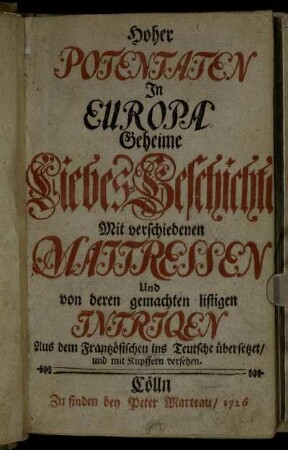 Hoher
POTENTATEN
In
EUROPA
Geheime
Liebes-Geschichte
Mit verschiedenen
MAITRESSEN
Und
von deren gemachten listigen
INTRIQEN
Aus dem Frantzösischen ins Teutsche übersetzet/
und mit Kupffern versehen.
Cölln
Zu finden bey Peter Marteau/ 1726